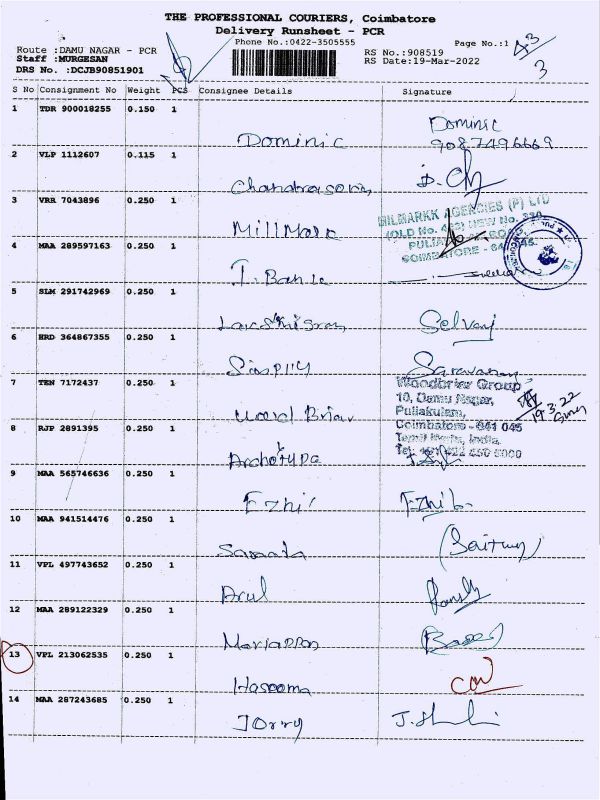 THE PROFESSIONAL COURIERS, Coimbatore
Delivery Runsheet - PCR
Phone No.:0422-3505555
Page No.:1
Route :DAMU NAGAR - PCR
RS No.:908519
Staff :MURGESAN
RS Date:19-Mar-2022
DRS No. :DCJB90851901
43
3
S No Consignment No Weight PCS Consignee Details Signature
1 TDR 900018255 0.150 1
Dominic Dominic
9087496669
2 VLP 1112607 0.115 1
3 VRR 7043896 0.250 1
MILMARKK AGENCIES (P) LTD
MillMark
4 MAA 289597163 0.250 1
COIMBATORE - 641 045
5 SLM 291742969 0.250 1
Selvaj
6 HRD 364867355 0.250 1
Simplly Saravanan
7 TEN 7172437 0.250 1
Woodbriar Group
10, Damu Nagar,
Puliakulam,
19.3.22
Coimbatore - 641 045
Word Briar
8 RJP 2891395 0.250 1
Tamil Nadu, India.
Archetypa
9 MAA 565746636 0.250 1
Ezhil Ezhil
10 MAA 941514476 0.250 1
11 VPL 497743652 0.250 1
Arul
12 MAA 289122329 0.250 1
Mariappan
13 VPL 213062535 0.250 1
Haseema
14 MAA 287243685 0.250 1
Jerry